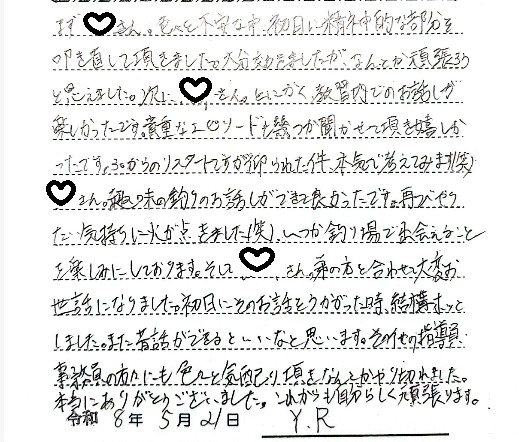 まず さん。色々と不安な中、初日に精神的な部分を
叩き直して頂きました。大分効きましたが、なんとか頑張ろう
と思えました。次に、 さん。とにかく、教習内でのお話しが
楽しかったです。貴重なエピソードも幾つか聞かせて頂き嬉しか
ったです。30からのリスタートですが仰られた件、本気で考えてみます(笑)
さん。趣味の釣りのお話しができて良かったです。再びやり
たい気持ちに火が点きました(笑)。いつか釣り場で出会えること
を楽しみにしております。そして さん。 の方と合わせ、大変お
世話になりました。初日にそのお話をうかがった時、結構ホッと
しました。また昔話ができるといいなと思います。その他の指導員
事務員の方々にも色々と気配り頂きなんとかやり切れました。
本当にありがとうございました。これからも自分らしく頑張ります。
令和 8年 5月 21日 Y.R